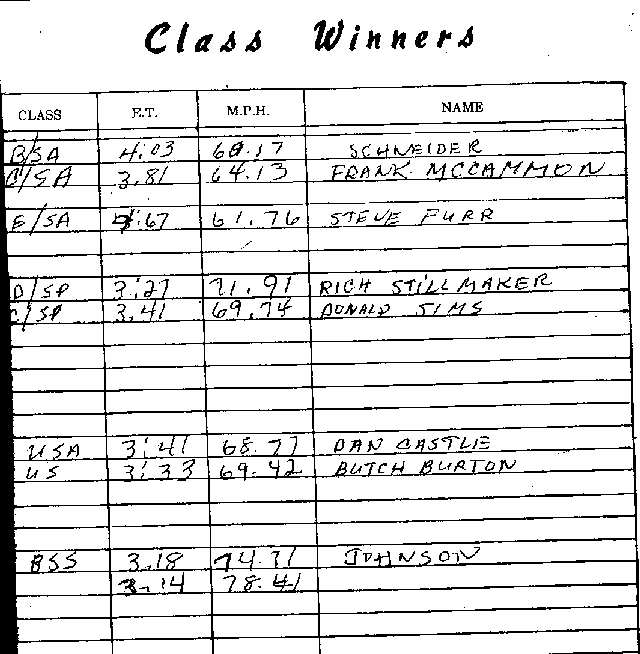 Class Winners
CLASS E.T. M.P.H. NAME
B/SA 4.03 60.17 SCHNEIDER
C/SA 3.81 64.13 FRANK MCCAMMON
E/SA 61.76 STEVE FURR
D/SP 3:27 71.91 RICH STILLMAKER
C/SP 3.41 69.74 DONALD SIMS
USA 3:41 68.77 DAN CASTLE
US 3:33 69.42 BUTCH BURTON
BSS 3.18 74.71 JOHNSON
3.14 78.41